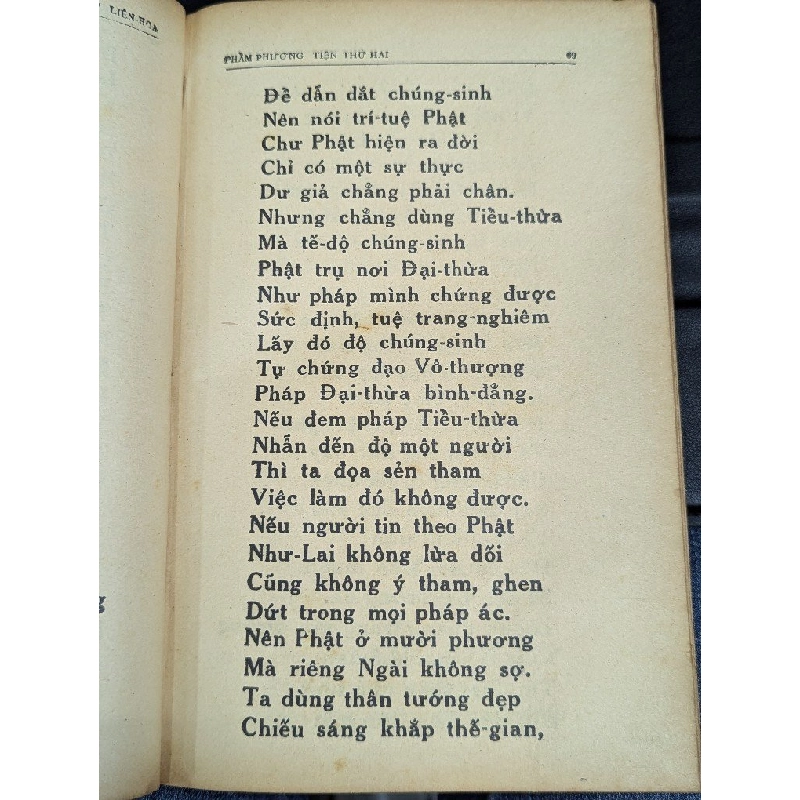 LIÊN-HOA
PHẨM PHƯƠNG TIỆN THỨ HAI 69
Để dẫn dắt chúng-sinh
Nên nói trí-tuệ Phật
Chư Phật hiện ra đời
Chỉ có một sự thực
Dư giả chẳng phải chân.
Nhưng chẳng dùng Tiểu-thừa
Mà tế-độ chúng-sinh
Phật trụ nơi Đại-thừa
Như pháp mình chứng được
Sức định, tuệ trang-nghiêm
Lấy đó độ chúng-sinh
Tự chứng đạo Vô-thượng
Pháp Đại-thừa bình-đẳng.
Nếu đem pháp Tiểu-thừa
Nhẫn đến độ một người
Thì ta đọa sẻn tham
Việc làm đó không được.
Nếu người tin theo Phật
Như-Lai không lừa dối
Cũng không ý tham, ghen
Dứt trong mọi pháp ác.
Nên Phật ở mười phương
Mà riêng Ngài không sợ.
Ta dùng thân tướng đẹp
Chiếu sáng khắp thế-gian,